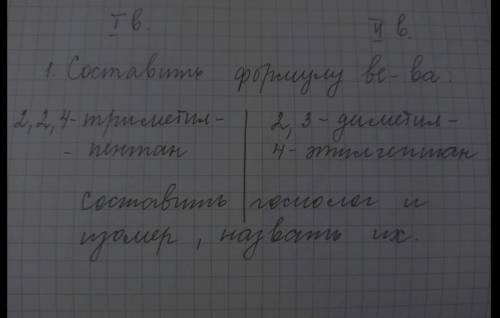 I в. II в.
1. Составить формулу ве-ва.
2,2,4-триметил- 2,3-диметил-
- пентан 4-этилгептан
Составить гомолог и
изомер, назвать их.